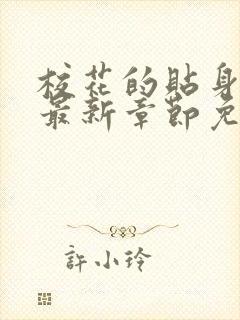 校花的貼身
最新章節免
許小玲